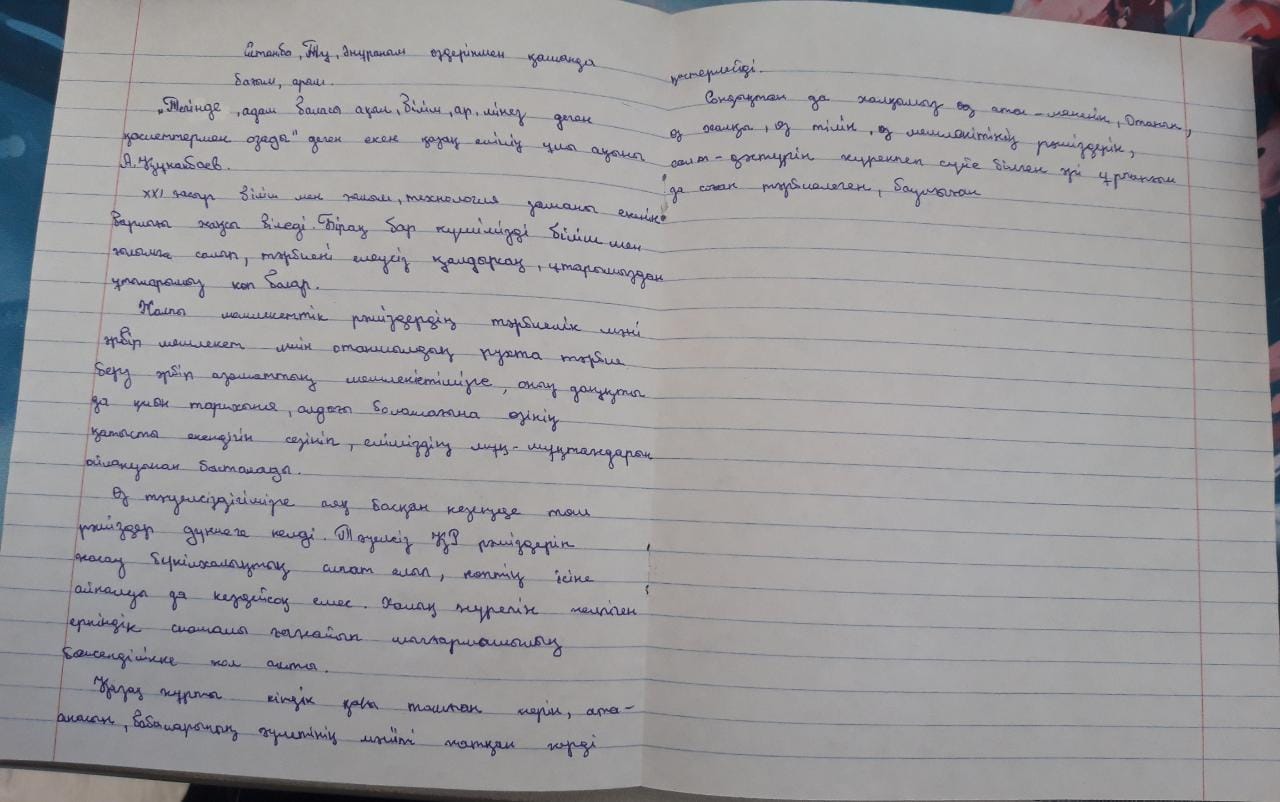 Елтаңба, Ту, Әнұраным өздеріңмен қашанда
бағым, арым.
„Тегінде, адам баласы ақыл, білім, ар, мінез деген
қасиеттермен озады" деген екен қазақ елінің ұлы ақыны
А. Құнанбаев.
XXI ғасыр білім мен ғылым, технология заманы екенін
барлығы жақсы біледі. Бірақ бар күшімізді білім мен
ғылымға салып, тәрбиені елеусіз қалдырсақ, ұтарымыздан
ұтыларымыз көп болар.
Жалпы мемлекеттік рәміздердің тәрбиелік мәні
әрбір мемлекет үшін отаншылдық рухта тәрбие
беру әрбір азаматтың мемлекетімізге, оның даңқты
да қиын тарихына, алдағы болашағына өзінің
қатысты екендігін сезініп, еліміздің мұң-мұқтаждарын
ойлауынан басталады.
Өз тәуелсіздігімізге аяқ басқан кезеңде төл
рәміздер дүниеге келді. Тәуелсіз ҚР рәміздерін
жасау бүкілхалықтық сипат алып, көптің ісіне
айналуы да кездейсоқ емес. Халық жүрегін кернеген
еркіндік самалы ғажайып шығармашылық
бәсекелестікке жол ашты.
Қазақ жұрты кіндік қаны тамған жерін, ата-
анасын, бабаларының әулетінің мәйіті жатқан жерді
қастерлейді.
Сондықтан да халқымыз өз ата-мекенін, Отанын,
өз жалқы, өз тілін, өз мемлекетінің рәміздерін,
салт-дәстүрін жүрекпен сүйе білген әрі ұрпағын
да солай тәрбиелеген, баулыған